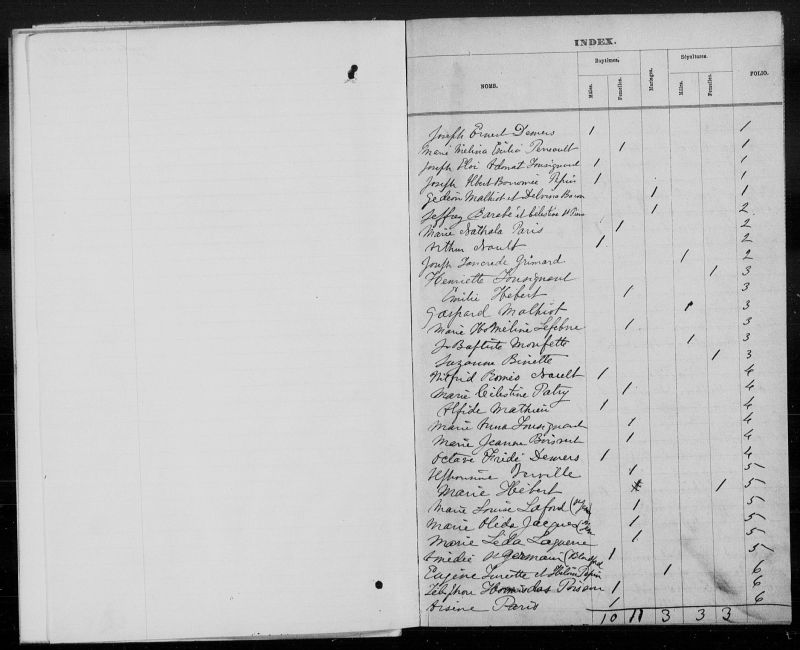 INDEX.
NOMS. Baptêmes. Mariages. Sépultures. FOLIO.
Mâles. Femelles. Mâles. Femelles.
Joseph Ernest Demers 1 1
Marie Melina Emilia Perreault 1 1
Joseph Eloi Adonat Tousignant 1 1
Joseph Albert Bonomie Pepin 1 1
Gedéon Malhiot et Delvina 1 1
Jeffrey Barabé et Célestine 1 2
Marie Nathala Paris 1 2
Arthur Nault 1 2
Joseph Tancrede Grimard 1 2
Henriette Tousignant 1 3
Emilie Hebert 1 3
Gaspard Malhiot 1 3
Marie Méline Lefebvre 1 3
J Baptiste Monfette 1 3
Suzanne Binette 1 3
Wilfrid Roméo Nault 1 4
Marie Célestine Patry 1 4
Alfide Mathieu 1 4
Marie Anna Tousignant 1 4
Marie Jeanne Boisvert 1 4
Octave Fridé Demers 1 4
Turville 1 5
Marie Hébert 1 5
Marie Louise Laford 1 5
Marie Olida Jacques 1 5
Marie Léda Laguerre 1 5
Amédée St Germain (Blandford 1 6
Eugène Turcotte et Pepin 1 6
Télesphore Hormidas Poisson 1 6
Arsène Paris 1 6
10 11 3 3 3